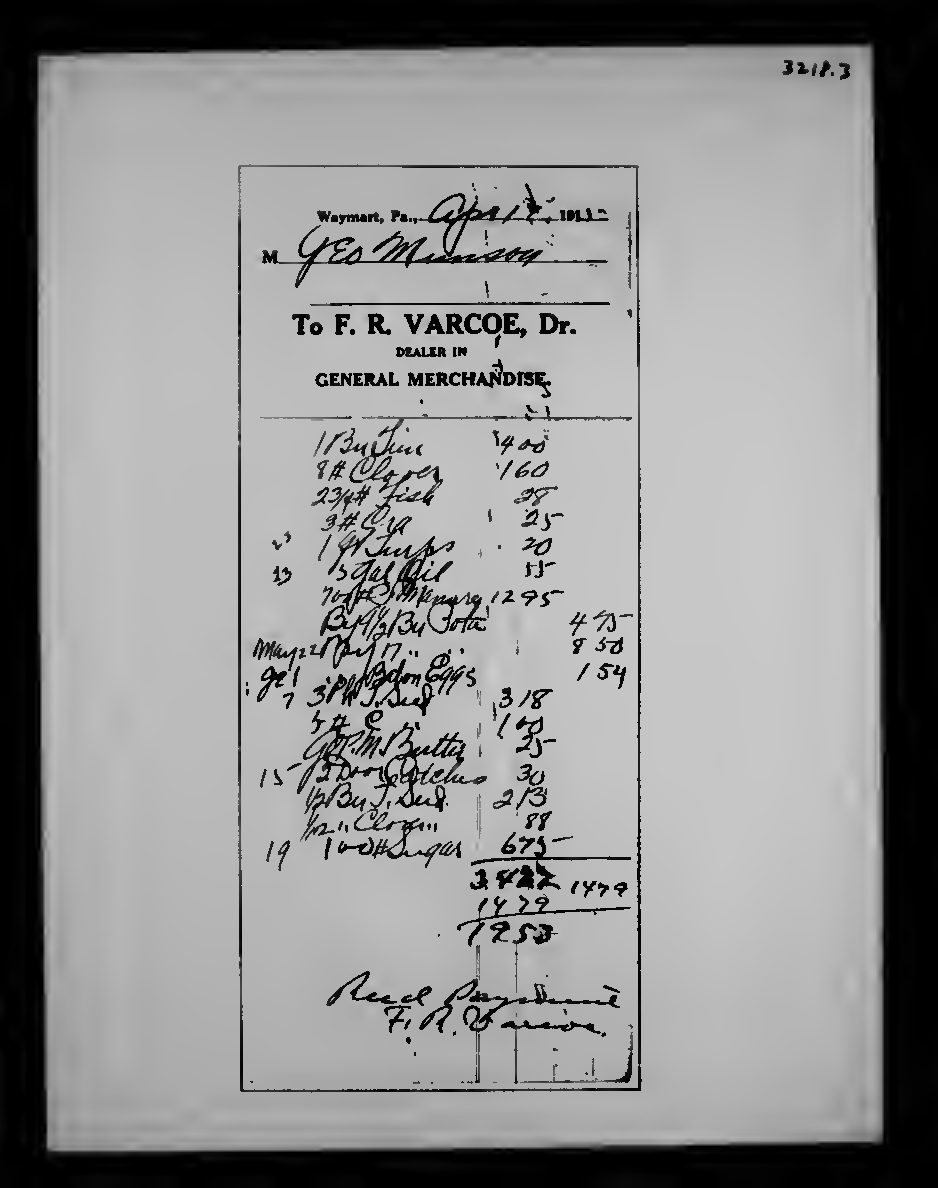 3218.3
Waymart, Pa., Apr 1 191
M Geo Munson
To F. R. VARCOE, Dr.
DEALER IN
GENERAL MERCHANDISE.
1 Bu Tim 4 00
8# Clover 1 60
2 3/4# Fish 28
3# 25
1 Turps 20
13 5 Gal Oil 55
700# Manure 12 95
By 9 1/2 Bu Pota 4 75
May 22 By 17 " " 8 50
1 Eggs 1 54
7 3 T. Sed 3 18
5# C " 1 00
Butter 25
15 2 Door Catches 30
1/2 Bu T. Sed 2 13
1/12 " Clover " 88
19 100# Sugar 6 75
34 22 14 79
14 79
19 53
Recd Payment
F. R. Varcoe.